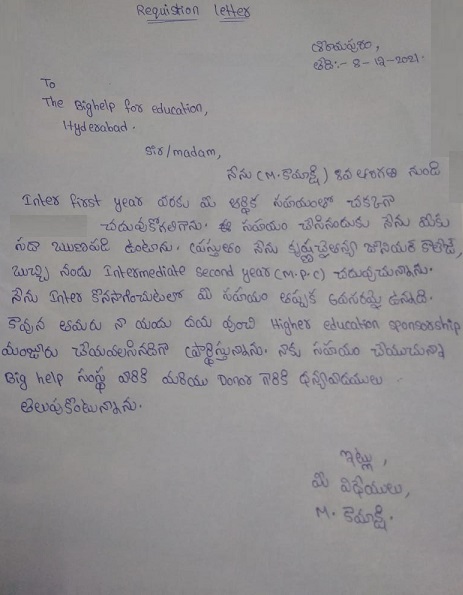 Requistion letter
తేది:- 8-12-2021.
To
The Bighelp for education,
Hyderabad.
sir/madam,
నేను (M. కామాక్షి) 8వ తరగతి నుండి
Inter first year వరకు మీ ఆర్థిక సహాయంతో చక్కగా
చదువుకోగలిగాను. ఈ సహాయం చేసినందుకు నేను మీకు
సదా ఋణపడి ఉంటాను. ప్రస్తుతం నేను కృష్ణచైతన్య జూనియర్ కాలేజీ,
నందు Intermediate second year (M.P.C) చదువుచున్నాను.
నేను Inter కొనసాగించుటలో మీ సహాయం ఉన్నది.
కావున తమరు నా యందు దయ వుంచి Higher education sponsorship
మంజూరు చేయవలసినదిగా ప్రార్థిస్తున్నాను. నాకు సహాయం చేయుచున్న
Big help సంస్థ వారికి మరియు Donor గారికి ధన్యవాదములు
తెలుపుకొంటున్నాను.
ఇట్లు,
మీ విధేయులు,
M. కామాక్షి.